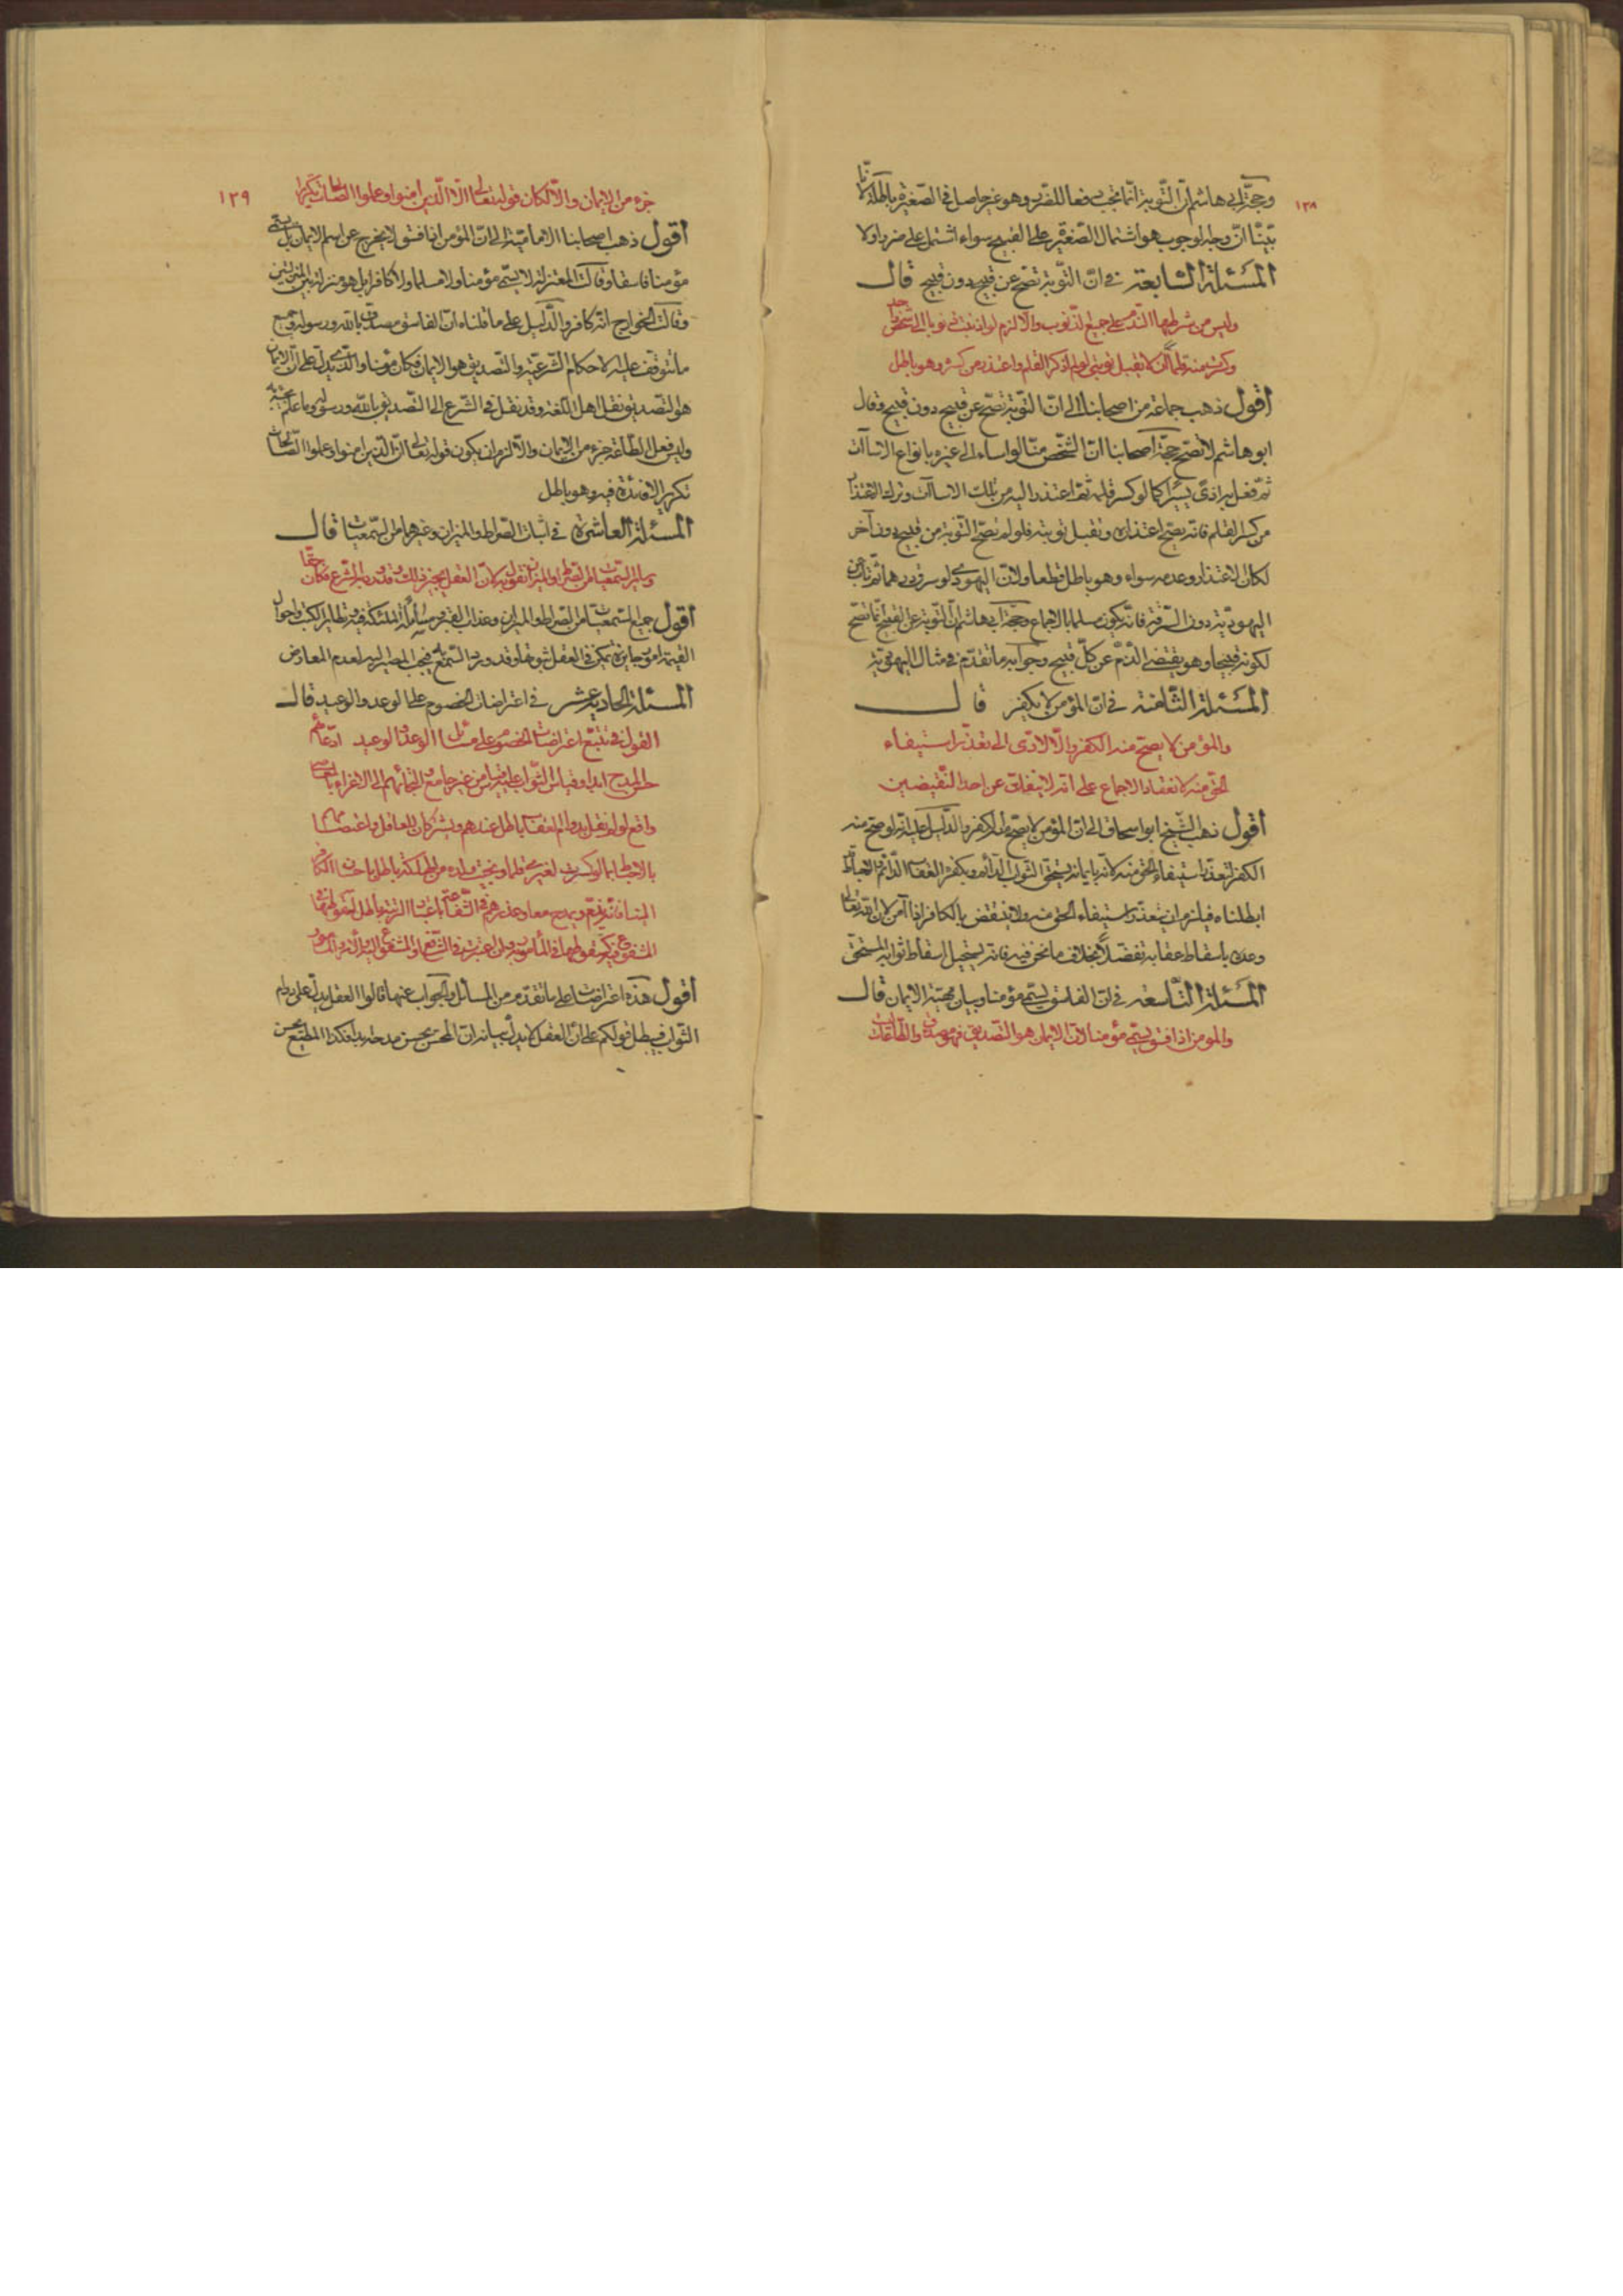 ١٢٨
وحجة ابي هاشم انّ التّوبة انّما تجب دفعا للضّرر وهو غير حاصل في الصّغيرة بالجملة لانّا
بيّنّا انّ وجه الوجوب هو اشتمال الصّغيرة على القبيح سواء اشتمل على ضرر اولا
المسئلة السّابعة في انّ التّوبة تصحّ عن قبيح دون قبيح قال
وليس من شرطها النّدم على جميع الذّنوب والّا لزم لو اذنبت ذنوبا الى شخص
وكسرت منه قلما ان لا تقبل توبتي لو لم اذكر القلم واعتذر من كسره وهو باطل
اقول ذهب جماعة من اصحابنا الى انّ التّوبة تصحّ عن قبيح دون قبيح وقال
ابو هاشم لا تصحّ حجّة اصحابنا انّ الشّخص منّا لو اساء الى غيره بانواع الاساآت
ثمّ فعل به اذى يسيرا كما لو كسر قلمه ثمّ اعتذر اليه من تلك الاساآت وترك الاعتذار
من كسر القلم فانّه يصحّ اعتذاره وتقبل توبته فلو لم تصحّ التّوبة من قبيح دون آخر
لكان الاعتذار وعدمه سواء وهو باطل قطعا ولانّ اليهودي لو سرق درهما ثم تاب عن
اليهوديّة دون السّرقة فانّه يكون مسلما بالاجماع وحجّة ابي هاشم انّ التّوبة عن القبيح انّما تصحّ
لكونه قبيحا وهو يقتضي الذّمّ عن كلّ قبيح وجوابه ما تقدّم في مثال اليهوديّة
المسئلة الثّامنة في انّ المؤمن لا يكفر قال
والمؤمن لا يصحّ منه الكفر والّا لادّى الى تعذّر استيفاء
الحق منه لانعقاد الاجماع على انّه لا ينفكّ عن احد النّقيضين
اقول ذهب الشّيخ ابو اسحاق الى انّ المؤمن لا يصحّ منه الكفر والدّليل عليه انّه لو صحّ منه
الكفر لتعذّر استيفاء الحق منه لانّه بايمانه يستحق الثّواب الدّائم وبكفره العقاب الدّائم والاحباط
ابطلناه فيلزم ان يتعذّر استيفاء الحق منه ولا ينتقض بالكافر اذا آمن لانّ الله تعالى
وعده باسقاط عقابه تفضّلا بخلاف ما نحن فيه فانّه يستحيل اسقاط ثوابه المستحقّ
المسئلة التّاسعة في انّ الفاسق يسمّى مؤمنا وبيان مهيّة الايمان قال
والمؤمن اذا فسق يسمّى مؤمنا لانّ الايمان هو التّصديق فهو مصدّق والطّاعات
١٢٩
جزء من الايمان والّا لكان قوله تعالى الّا الّذين امنوا وعملوا الصّالحات تكريرا
اقول ذهب اصحابنا الاماميّة الى انّ المؤمن اذا فسق لا يخرج عن اسم الايمان بل يسمّى
مؤمنا فاسقا وقالت المعتزلة لا يسمّى مؤمنا ولا مسلما ولا كافرا بل هو منزلة بين المنزلتين
وقالت الخوارج انّه كافر والدّليل على ما قلناه انّ الفاسق مصدّق بالله ورسوله وجميع
ما تتوقف عليه الاحكام الشّرعيّة والتّصديق هو الايمان فكان مؤمنا والّذي يدلّ على انّ الايمان
هو التّصديق نقل اهل اللّغة وقد نقل في الشّرع الى التّصديق بالله ورسوله وما علم مجيئه به
وليس فعل الطّاعة جزء من الايمان والّا لزم ان يكون قوله تعالى انّ الّذين امنوا وعملوا الصّالحات
تكريرا لا فائدة فيه وهو باطل
المسئلة العاشرة في اثبات الصّراط والميزان وغيرهما من السّمعيّات قال
وسائر السّمعيّات من الصّراط والميزان نقول به لانّ العقل يجيز ذلك وقد ورد الشّرع فكان حقّا
اقول جميع السّمعيّات من الصّراط والميزان وعذاب القبر ومسائلة الملئكة فيه وتطاير الكتب واحوال
القيمة امور جايزة يمكن في العقل ثبوتها وقد ورد السّمع بها فيجب المصير اليه لعدم المعارض
المسئلة الحادية عشر في اعتراضات الخصوم على الوعد والوعيد قال
القول في تتبّع اعتراضات الخصوم على مسائل الوعد والوعيد ادّعاؤهم
حسن المدح ابدا وقياس الثّواب عليه قياس من غير جامع والتجائهم الى الاغراء
واقع لو لم نقل بدوام العقاب باطل عندهم ويشركان للعاقل واعتصامهم
بالاحباط بما لو كسرت لغيري قلما ونجيت ولده من المهلكة باطل باحسان الكافر
الينا فانه يذمّ ويمدح معا وعذرهم في الشّفاعة باعتبار الرّتبة باطل
اقول هذه اعتراضات على ما تقدّم من المسائل والجواب عنها قالوا العقل يدلّ على دوام
الثّواب فيبطل قولكم على انّ العقل لا يدلّ بيانه انّ المحسن يحسن مدحه ابدا فكذا المطيع يحسن